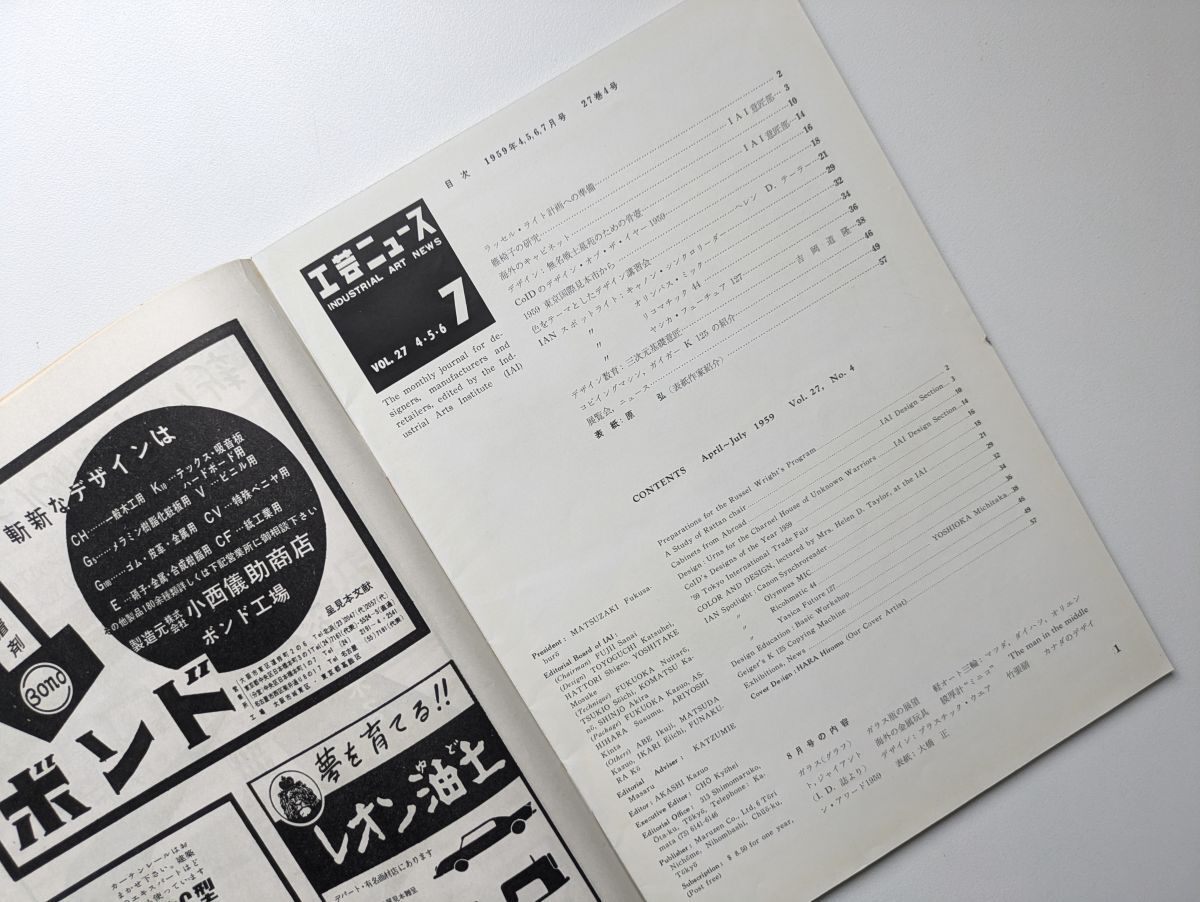 斬新なデザインは
CH……一般木工用 K₁₀…テックス・吸音板
ハードボード用
G₅……メラミン樹脂化粧板用 V…ビニル用
G₁₀₀……ゴム・皮革・金属用 CV…特殊ベニヤ用
E…硝子・金属・合成樹脂用 CF…紙工業用
その他製品180余種類詳しくは下記営業所に御相談下さい
製造元 株式会社 小西儀助商店
ボンド工場
呈見本文献
着剤
ボンド
夢を育てる!!
レオン油土
ゆど
デパート・有名画材店にあります
カーテンレールは
まかせ下さい。建築
エキスパートはど
使っています
C型
目次 1959年4,5,6,7月号 27巻4号
工芸ニュース
INDUSTRIAL ART NEWS
VOL. 27 4・5・6 7
The monthly journal for de-
signers, manufacturers and
retailers, edited by the Ind-
ustrial Arts Institute (IAI)
ラッセル・ライト計画への準備 2
籐椅子の研究 IAI意匠部 3
海外のキャビネット 10
デザイン:無名戦士墓苑のための骨壺 IAI意匠部 14
CoIDのデザイン・オブ・ザ・イヤー 1959 16
1959 東京国際見本市から 18
色をテーマとしたデザイン講習会 ヘレン D. テーラー 21
IAN スポットライト:キャノン・シンクロリーダー 29
〃 オリンパス・ミック 32
〃 リコマチック 44 34
〃 ヤシカ・フューチュア 127 36
デザイン教育:三次元基礎意匠 吉岡道隆 38
コピイングマシン、ガイガー K 125 の紹介 46
展覧会、ニュース 49
表紙:原 弘(表紙作家紹介) 57
CONTENTS April~July 1959 Vol. 27, No. 4
Preparations for the Russel Wright's Program 2
A Study of Rattan chair IAI Design Section 3
Cabinets from Abroad 10
Design: Urns for the Charnel House of Unknown Warriors IAI Design Section 14
CoID's Designs of the Year 1959 16
'59 Tokyo International Trade Fair 18
COLOR AND DESIGN, lectured by Mrs. Helen D. Taylor, at the IAI 21
IAN Spotlight: Canon Synchroreader 29
〃 Olympus MIC 32
〃 Ricohmatic 44 34
〃 Yasica Future 127 36
Design Education: Basic Workshop YOSHIOKA Michitaka 38
Geiger's K 125 Copying Machine 46
Exhibitions, News 49
Cover Design: HARA Hiromu (Our Cover Artist) 57
President: MATSUZAKI Fukusa-
burō
Editorial Board of IAI:
(Chairman) FUJII Sanai
(Design) TOYOGUCHI Katsuhei,
HATTORI Shigeo, YOSHITAKE
Mosuke
(Technique) FUKUOKA Nuitarō,
TSUKIO Sōichi, KOMATSU Ka-
nō, SHINJO Akira
(Package) FUKUOKA Kazuo, AS-
HIHARA Susumu, ARIYOSHI
Kinta
(Others) ABE Ikuji, MATSUDA
Kazuo, IKARI Eiichi, FUNAKU-
RA Kō
Editorial Adviser: KATZUMIE
Masaru
Editor: AKASHI Kazuo
Executive Editor: CHŌ Kyōhei
Editorial Office: 313 Shimomaruko,
Ōta-ku, Tōkyō, Telephone: Ka-
mata (73) 6141-6146
Publisher: Maruzen Co., Ltd, 6 Tōri
Nichōme, Nihombashi, Chūō-ku,
Tōkyō
Subscription: $ 8.50 for one year,
(Post free)
8月号の内容
ガラス(グラフ) ガラス瓶の展望 軽オート三輪:マツダ、ダイハツ、オリエン
ト、ジャイアント 海外の金属玩具 膜厚計“ミニコ” The man in the middle
(I. D. 誌より) デザイン:プラスチック・ウェア 竹張絹 カナダのデザイ
ン・アワード1959 表紙:大橋 正
1